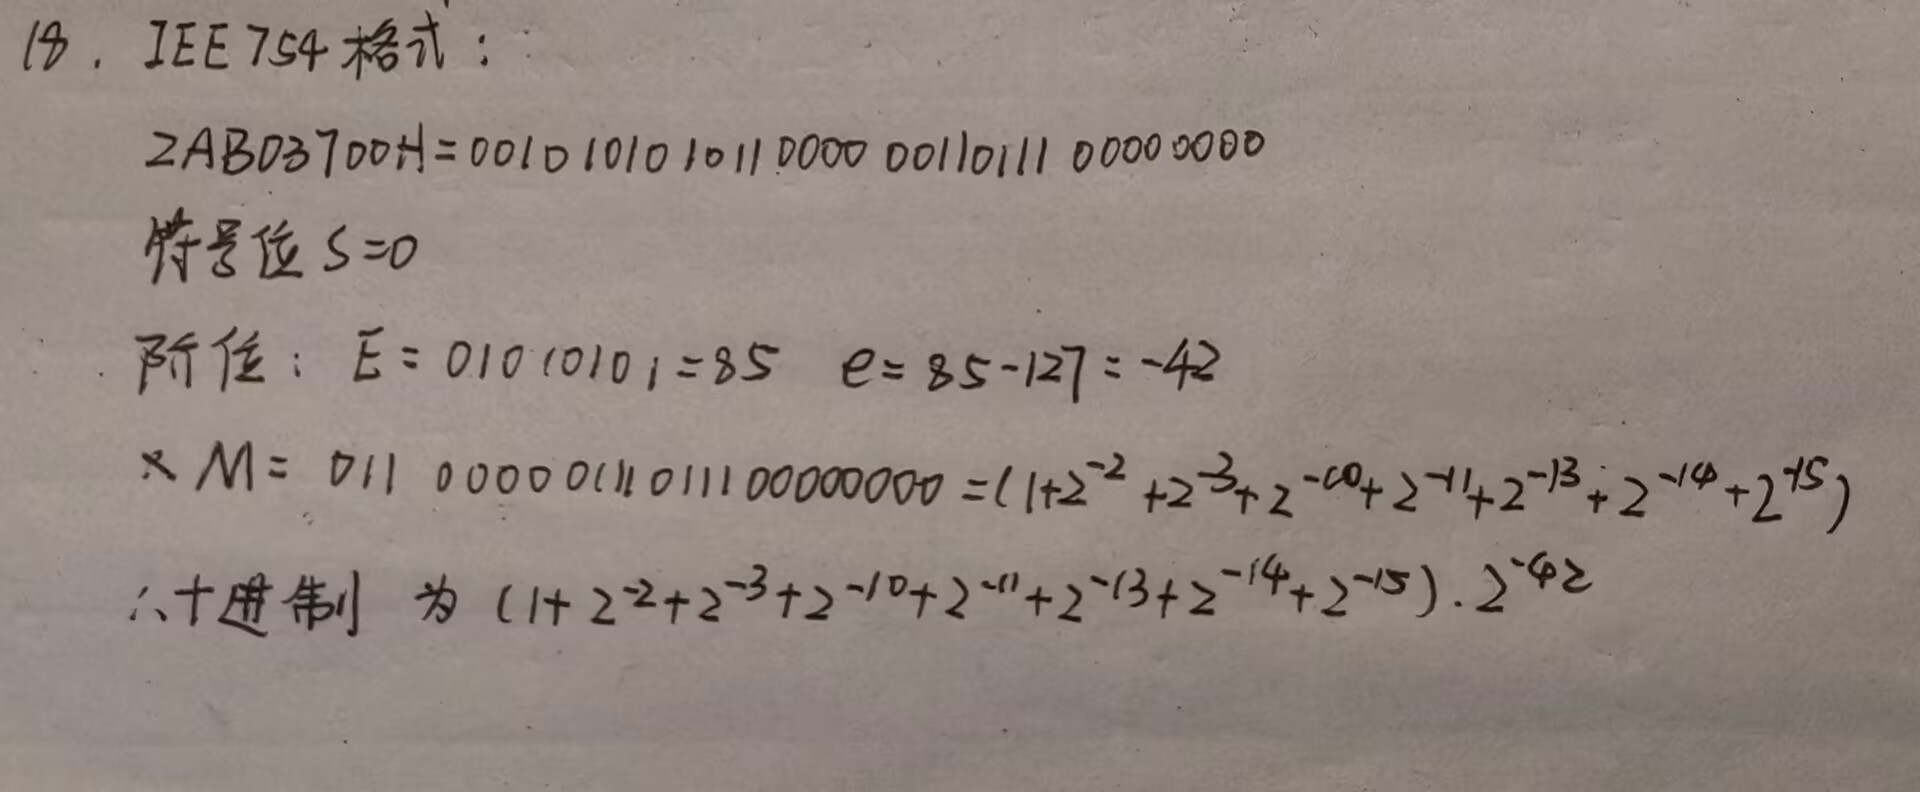 18. IEE754格式:
2AB03700H=00101010 10110000 00110111 00000000
符号位 S=0
阶位: E=01010101=85 e=85-127=-42
× M= 011 00000011011100000000 =(1+2⁻²+2⁻³+2⁻¹⁰+2⁻¹¹+2⁻¹³+2⁻¹⁴+2⁻¹⁵)
∴十进制 为 (1+2⁻²+2⁻³+2⁻¹⁰+2⁻¹¹+2⁻¹³+2⁻¹⁴+2⁻¹⁵).2⁻⁴²